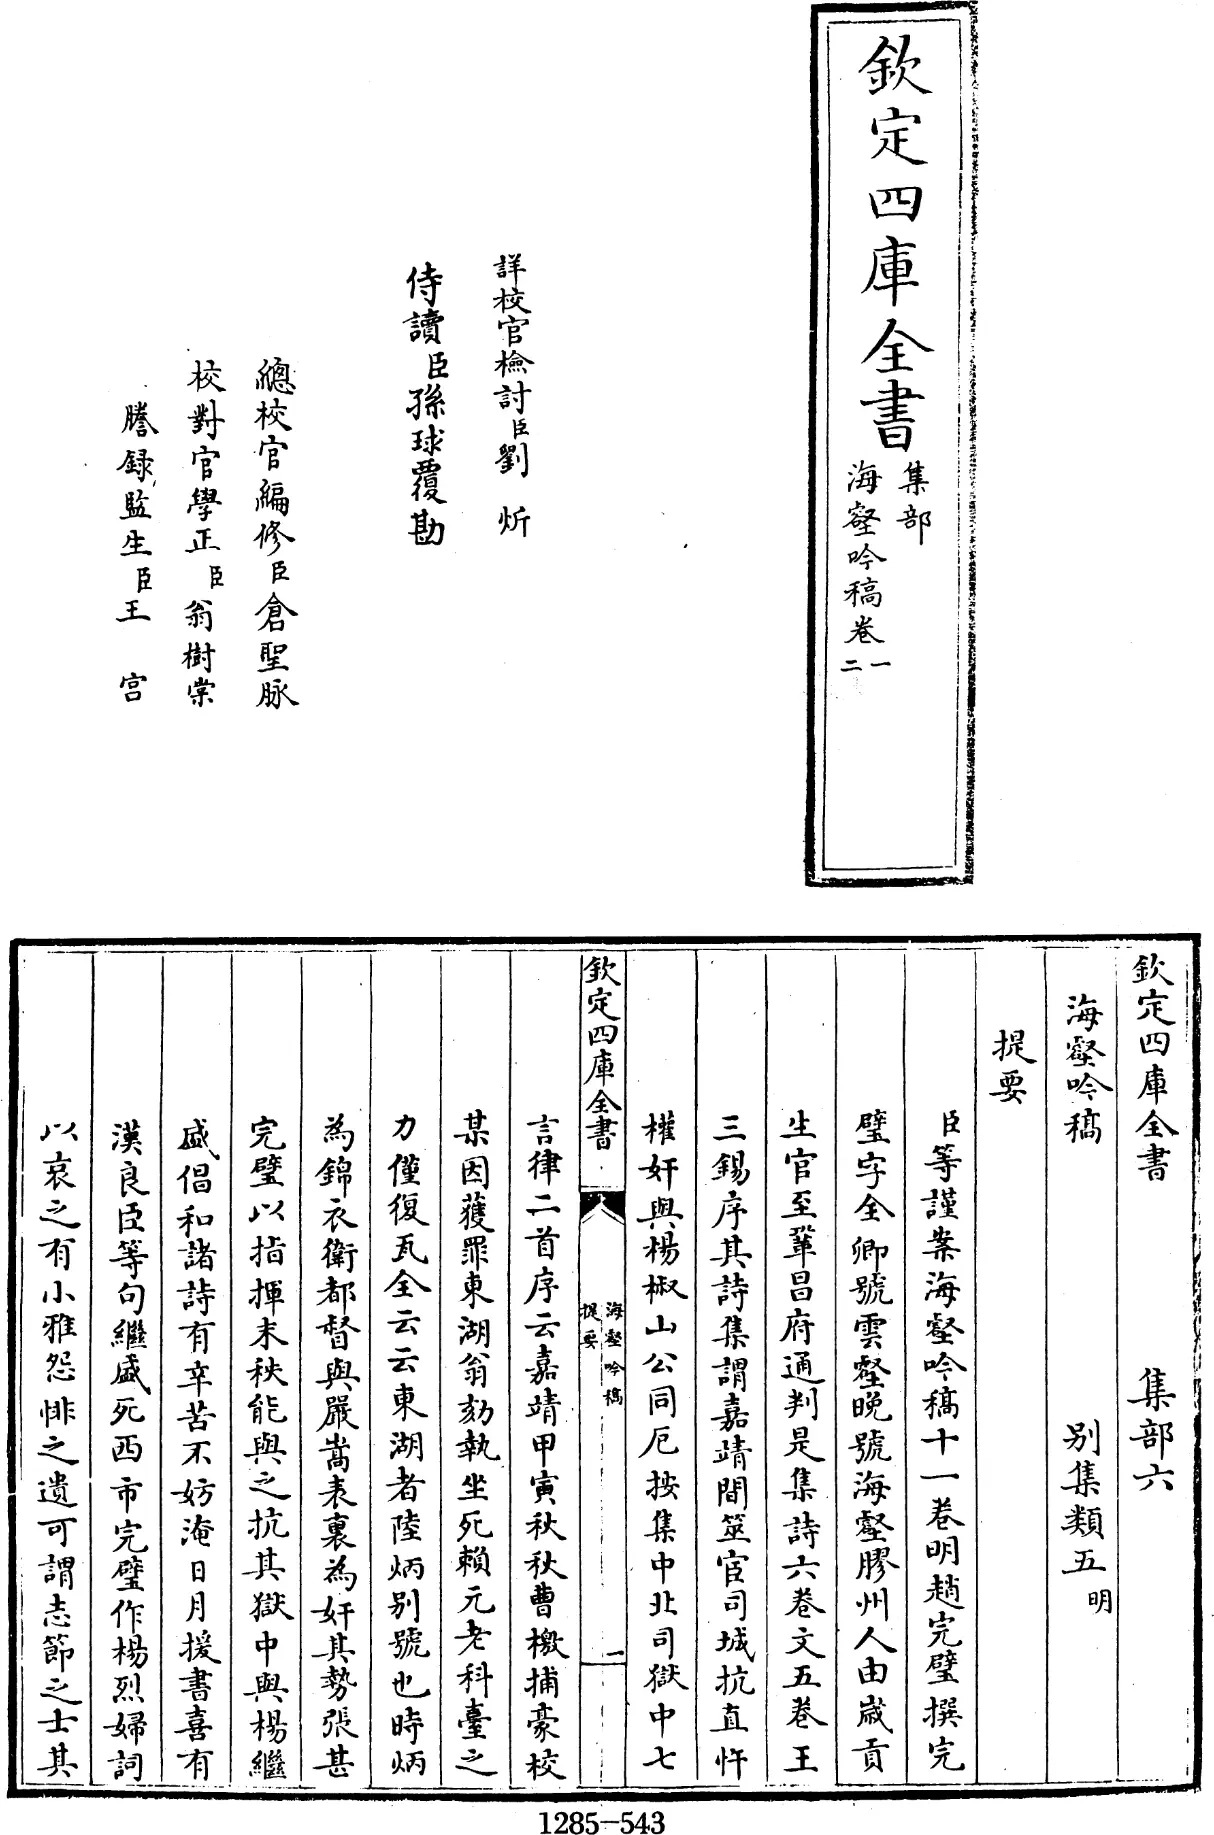 欽定四庫全書
集部
海壑吟稿卷一
二
詳校官檢討臣劉炘
侍讀臣孫球覆勘
總校官編修臣倉聖脉
校對官學正臣翁樹棠
謄録監生臣王宫
欽定四庫全書 集部六
海壑吟稿 别集類五明
提要
臣等謹案海壑吟稿十一卷明趙完璧撰完
璧字全卿號雲壑晚號海壑膠州人由歲貢
生官至鞏昌府通判是集詩六卷文五卷王
三錫序其詩集謂嘉靖間筮官司城抗直忤
權奸與楊椒山公同厄按集中北司獄中七
欽定四庫全書
海壑吟稿
提要
一
言律二首序云嘉靖甲寅秋秋曹檄捕豪校
某因獲罪東湖翁劾執坐死賴元老科臺之
力僅復瓦全云云東湖者陸炳别號也時炳
為錦衣衛都督與嚴嵩表裏為奸其勢張甚
完璧以指揮末秩能與之抗其獄中與楊繼
盛倡和諸詩有辛苦不妨淹日月援書喜有
漢良臣等句繼盛死西市完璧作楊烈婦詞
以哀之有小雅怨悱之遺可謂志節之士其
1285-543